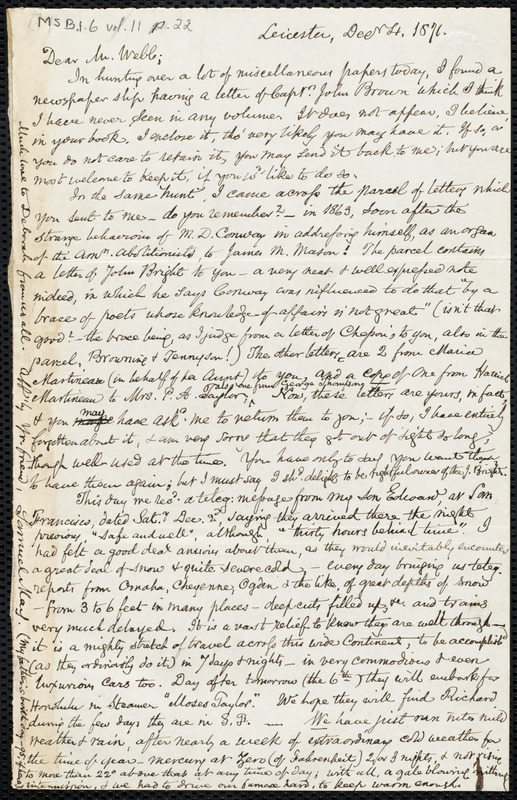 MS B.1.6 vol. 11 p. 22
Leicester, Decr. 4. 1871.
Dear Mr. Webb;
In hunting over a lot of miscellaneous papers today, I found a
newspaper slip having a letter of Captn. John Brown which I think
I have never seen in any volume. It does not appear, I believe,
in your book. I enclose it, tho' very likely you may have it. If so, or
you do not care to retain it, you may send it back to me; but you are
most welcome to keep it, if you wd. like to do so.
In the same "hunt", I came across the parcel of letters which
you sent to me – do you remember? – in 1863, soon after the
strange behaviour of M. D. Conway in addressing himself, as an organ
of the Amn. Abolitionists, to James M. Mason! The parcel contains
a letter of John Bright to you – a very neat & well expressed note
indeed, in which he says Conway was influenced to do that "by a
brace of poets whose knowledge of affairs is not great" (isn't that
good? – the brace being, as I judge from a letter of Chesson's to you, also in the
parcel, Browning & Tennyson!) The other letters are 2 from Maria
Martineau (in behalf of her Aunt) to you, and a copy of one from Harriet
Martineau to Mrs. P. A. Taylor, and one from George Thompson.
Now, these letters are yours, in fact,
& you may have askd. me to return them to you; – if so, I have entirely
forgotten about it, & am very sorry that they got out of sight so long,
though well used at the time. You have only to say you want them
to have them again; but I must say I shd. delight to be rightful owner of the J. Bright.
This day we recd. a teleg. message from my son Edward at San
Francisco, dated Saty. Dec. 2d. saying they arrived there the night
previous, "safe and well", although "thirty hours behind time". I
had felt a good deal anxious about them, as they would inevitably encounter
a great deal of snow & quite severe cold, – every day bringing us teleg.
reports from Omaha, Cheyenne, Ogden & the like, of great depths of snow
– from 3 to 6 feet in many places – deep cuts filled up, &c. and trains
very much delayed. It is a vast relief to know they are well through –
it is a mighty stretch of travel across this wide Continent, to be accomplishd
(as they ordinarily do it) in 7 days & nights – in very commodious & even
luxurious cars too. Day after tomorrow (the 6th) they will embark for
Honolulu in steamer "Moses Taylor". We hope they will find Richard
during the few days they are in S. F. — We have just run into mild
weather & rain, after nearly a week of extraordinary cold weather for
the time of year – mercury at Zero (of Fahrenheit) 2 or 3 nights, & not rising
to more than 22° above that at any time of day; with all, a gale blowing without
intermission, & we had to drive our furnace hard, to keep warm enough.
Much love to Deborah from us all. Affly. Yr. friend, Samuel May.